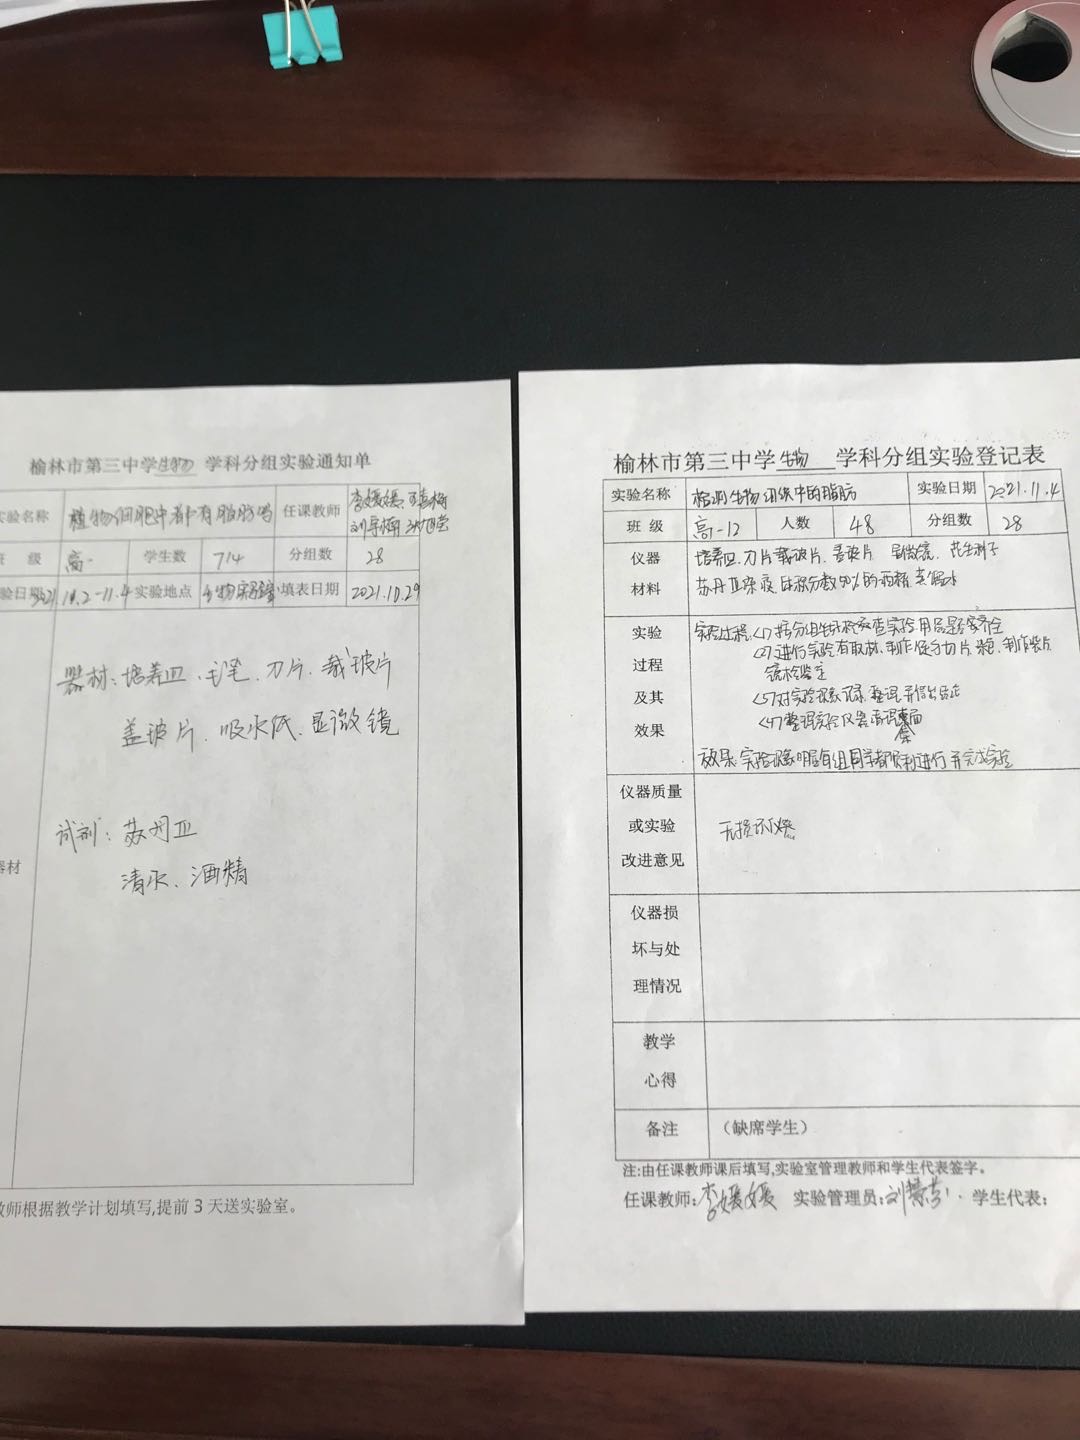 榆林市第三中学生物 学科分组实验通知单
实验名称 植物细胞中都有脂肪吗 任课教师 李媛媛
级 高一 学生数 714 分组数 28
验日期 2021 11.2-11.4 实验地点 生物实验室 填表日期 2021.10.29
器材
器材：培养皿、毛笔、刀片、载玻片
盖玻片、吸水纸、显微镜
试剂：苏丹Ⅲ
清水、酒精
教师根据教学计划填写,提前3天送实验室。
榆林市第三中学 生物 学科分组实验登记表
实验名称 检测生物组织中的脂肪 实验日期 2021.11.4
班 级 高一12 人数 48 分组数 28
仪器
材料
培养皿、刀片、载玻片、盖玻片 显微镜 花生种子
苏丹Ⅲ染液 体积分数50%的酒精 蒸馏水
实验
过程
及其
效果
实验过程:<1>按分组 检查实验用品是否齐全
<2>进行实验有取材、制作 切片 制作装片
镜检鉴定
<3>对实验现象记录、整理并得出结论
<4>整理实验仪器清理桌面
效果:实验现象明显每组同学都顺利进行并完成实验
仪器质量
或实验
改进意见
无损坏
仪器损
坏与处
理情况
教学
心得
备注 （缺席学生）
注:由任课教师课后填写,实验室管理教师和学生代表签字。
任课教师:李媛媛 实验管理员:刘 学生代表: